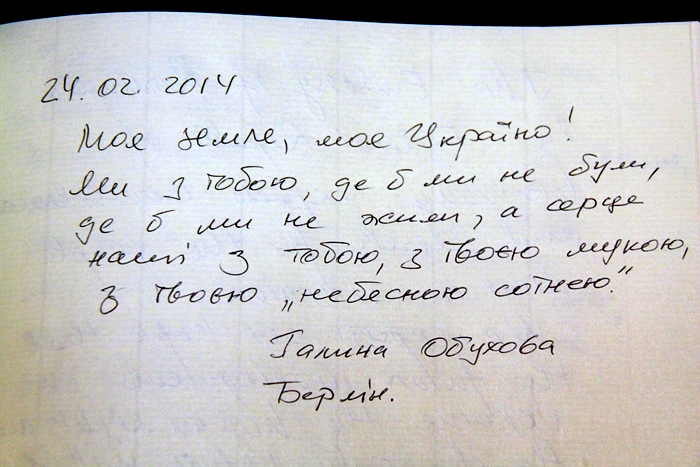 24. 02. 2014
Моя земле, моя Україно!
Ми з тобою, де б ми не були,
де б ми не жили, а серце
наші з тобою, з твоєю мукою,
з твоєю „небесною сотнею."
Галина Обухова
Берлін.